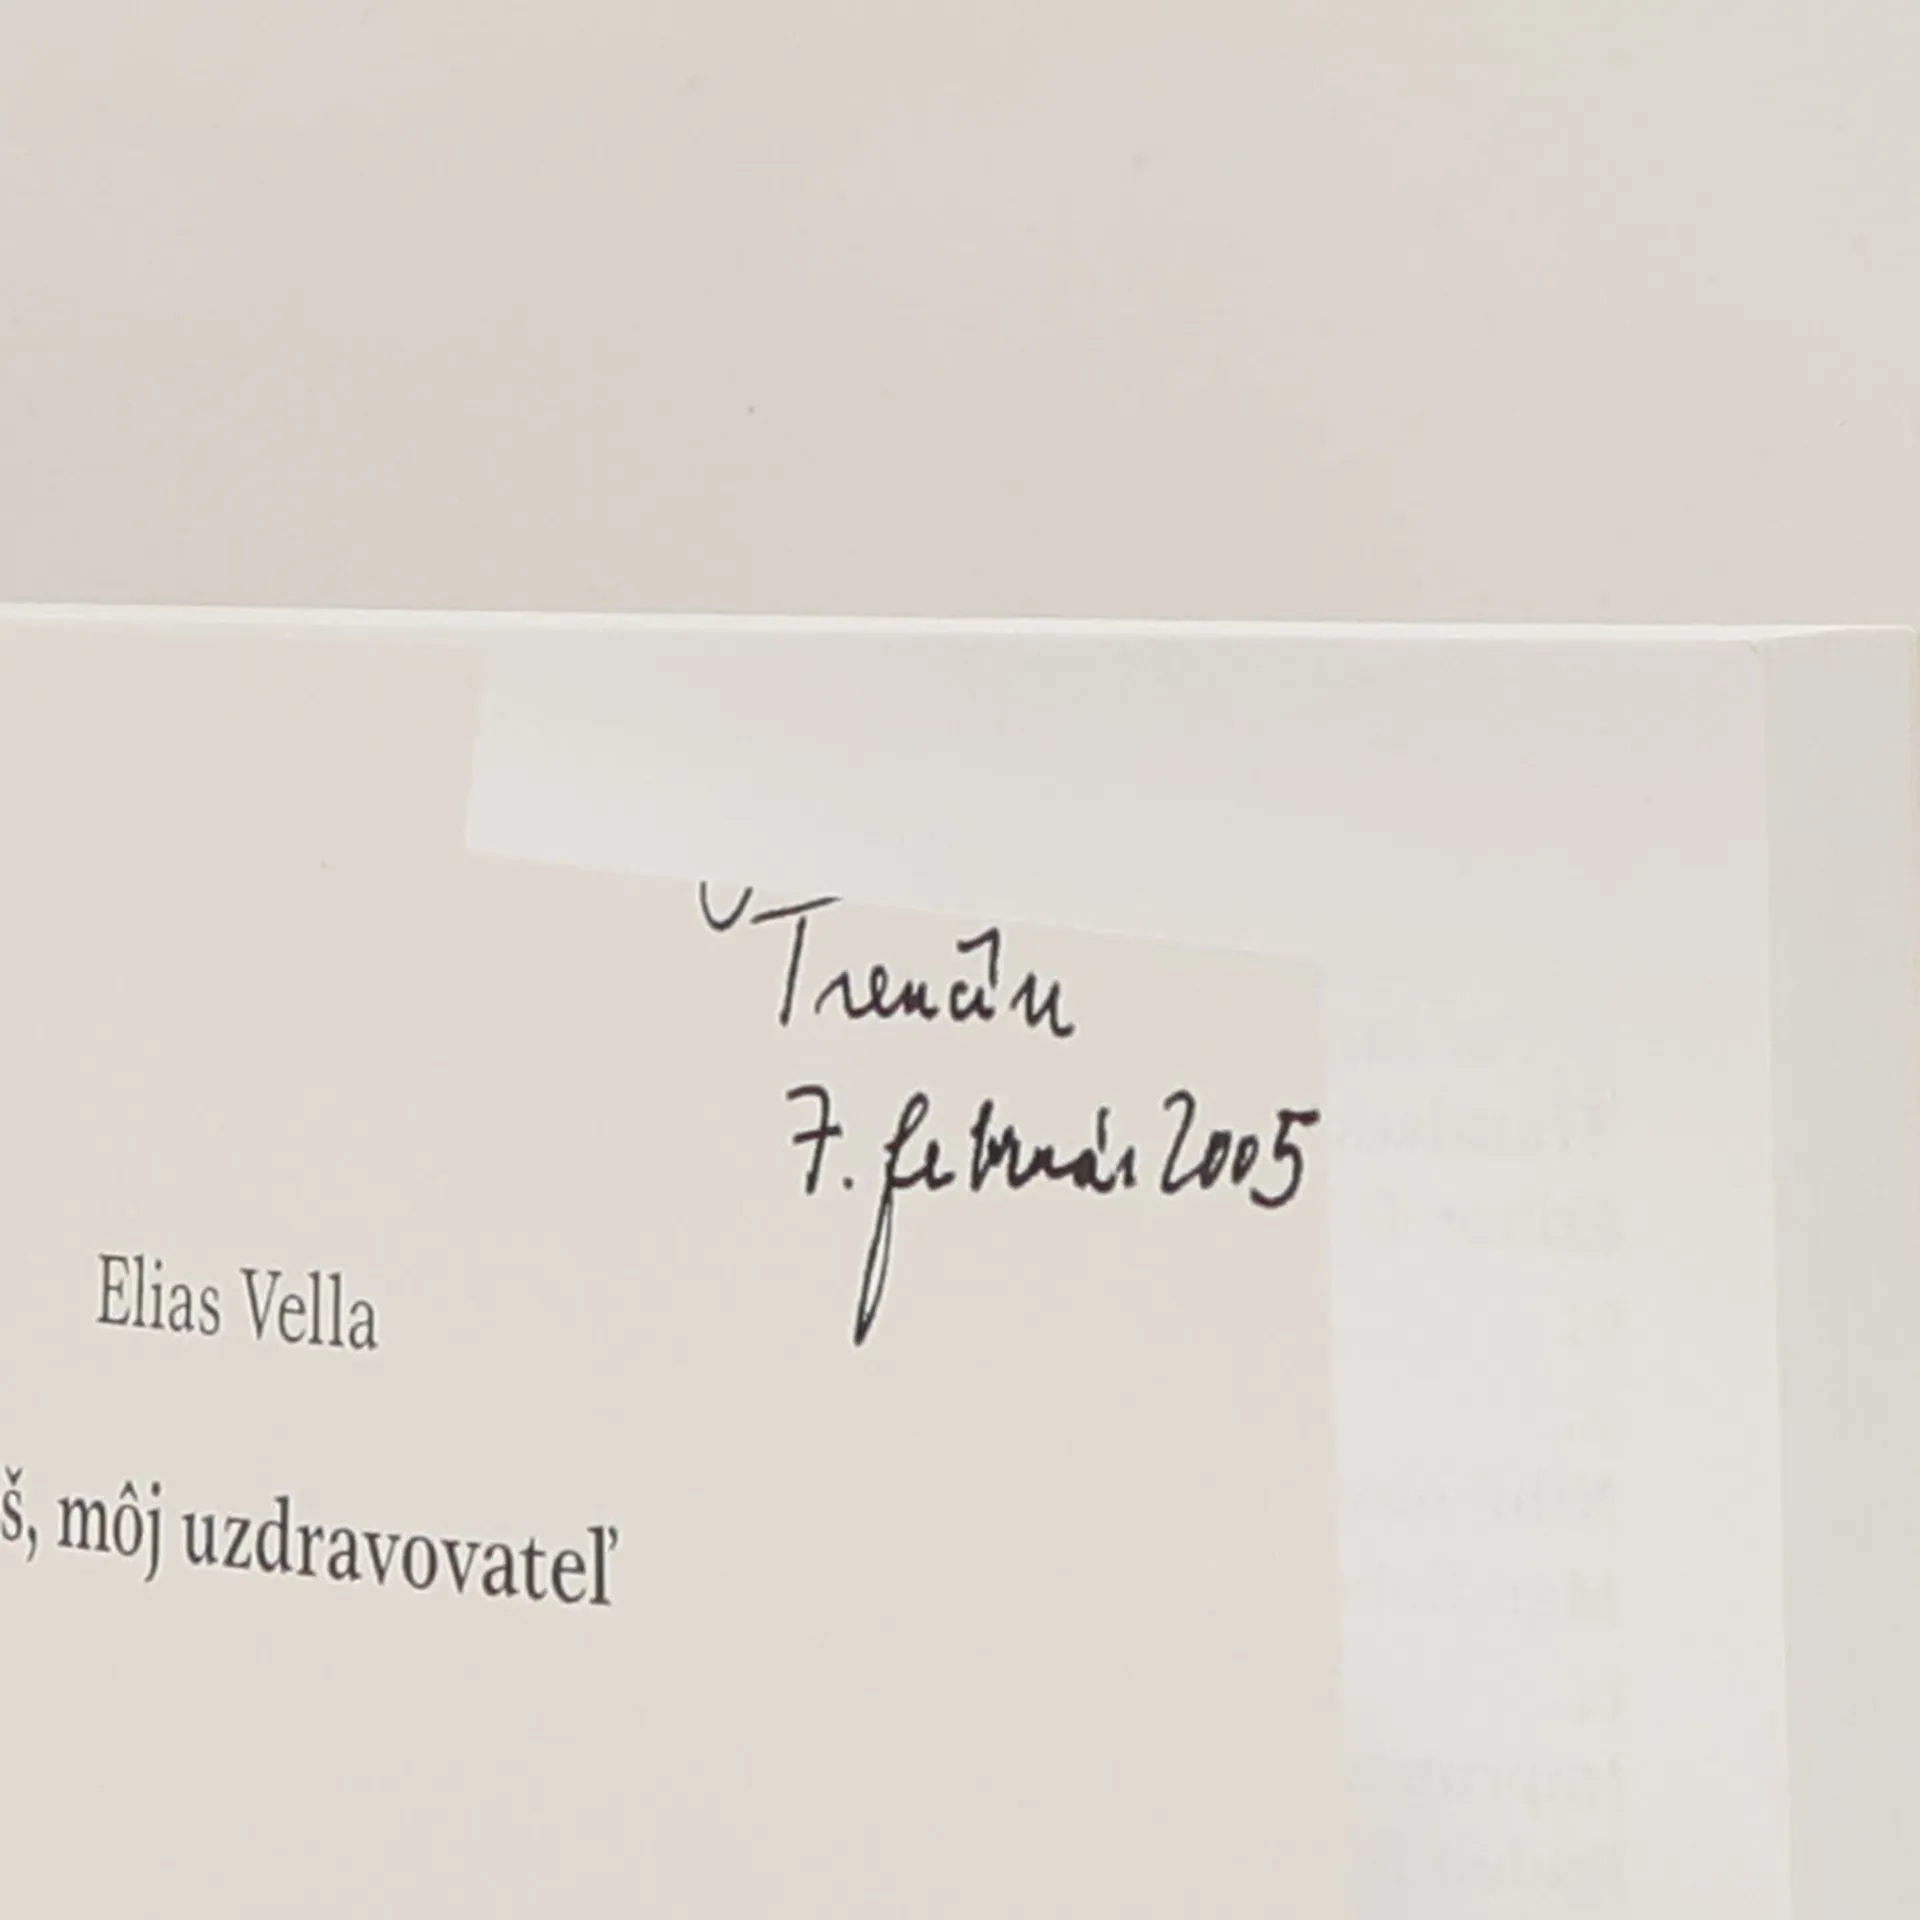 v Trenčín
7. február 2005
Elias Vella
š, môj uzdravovateľ